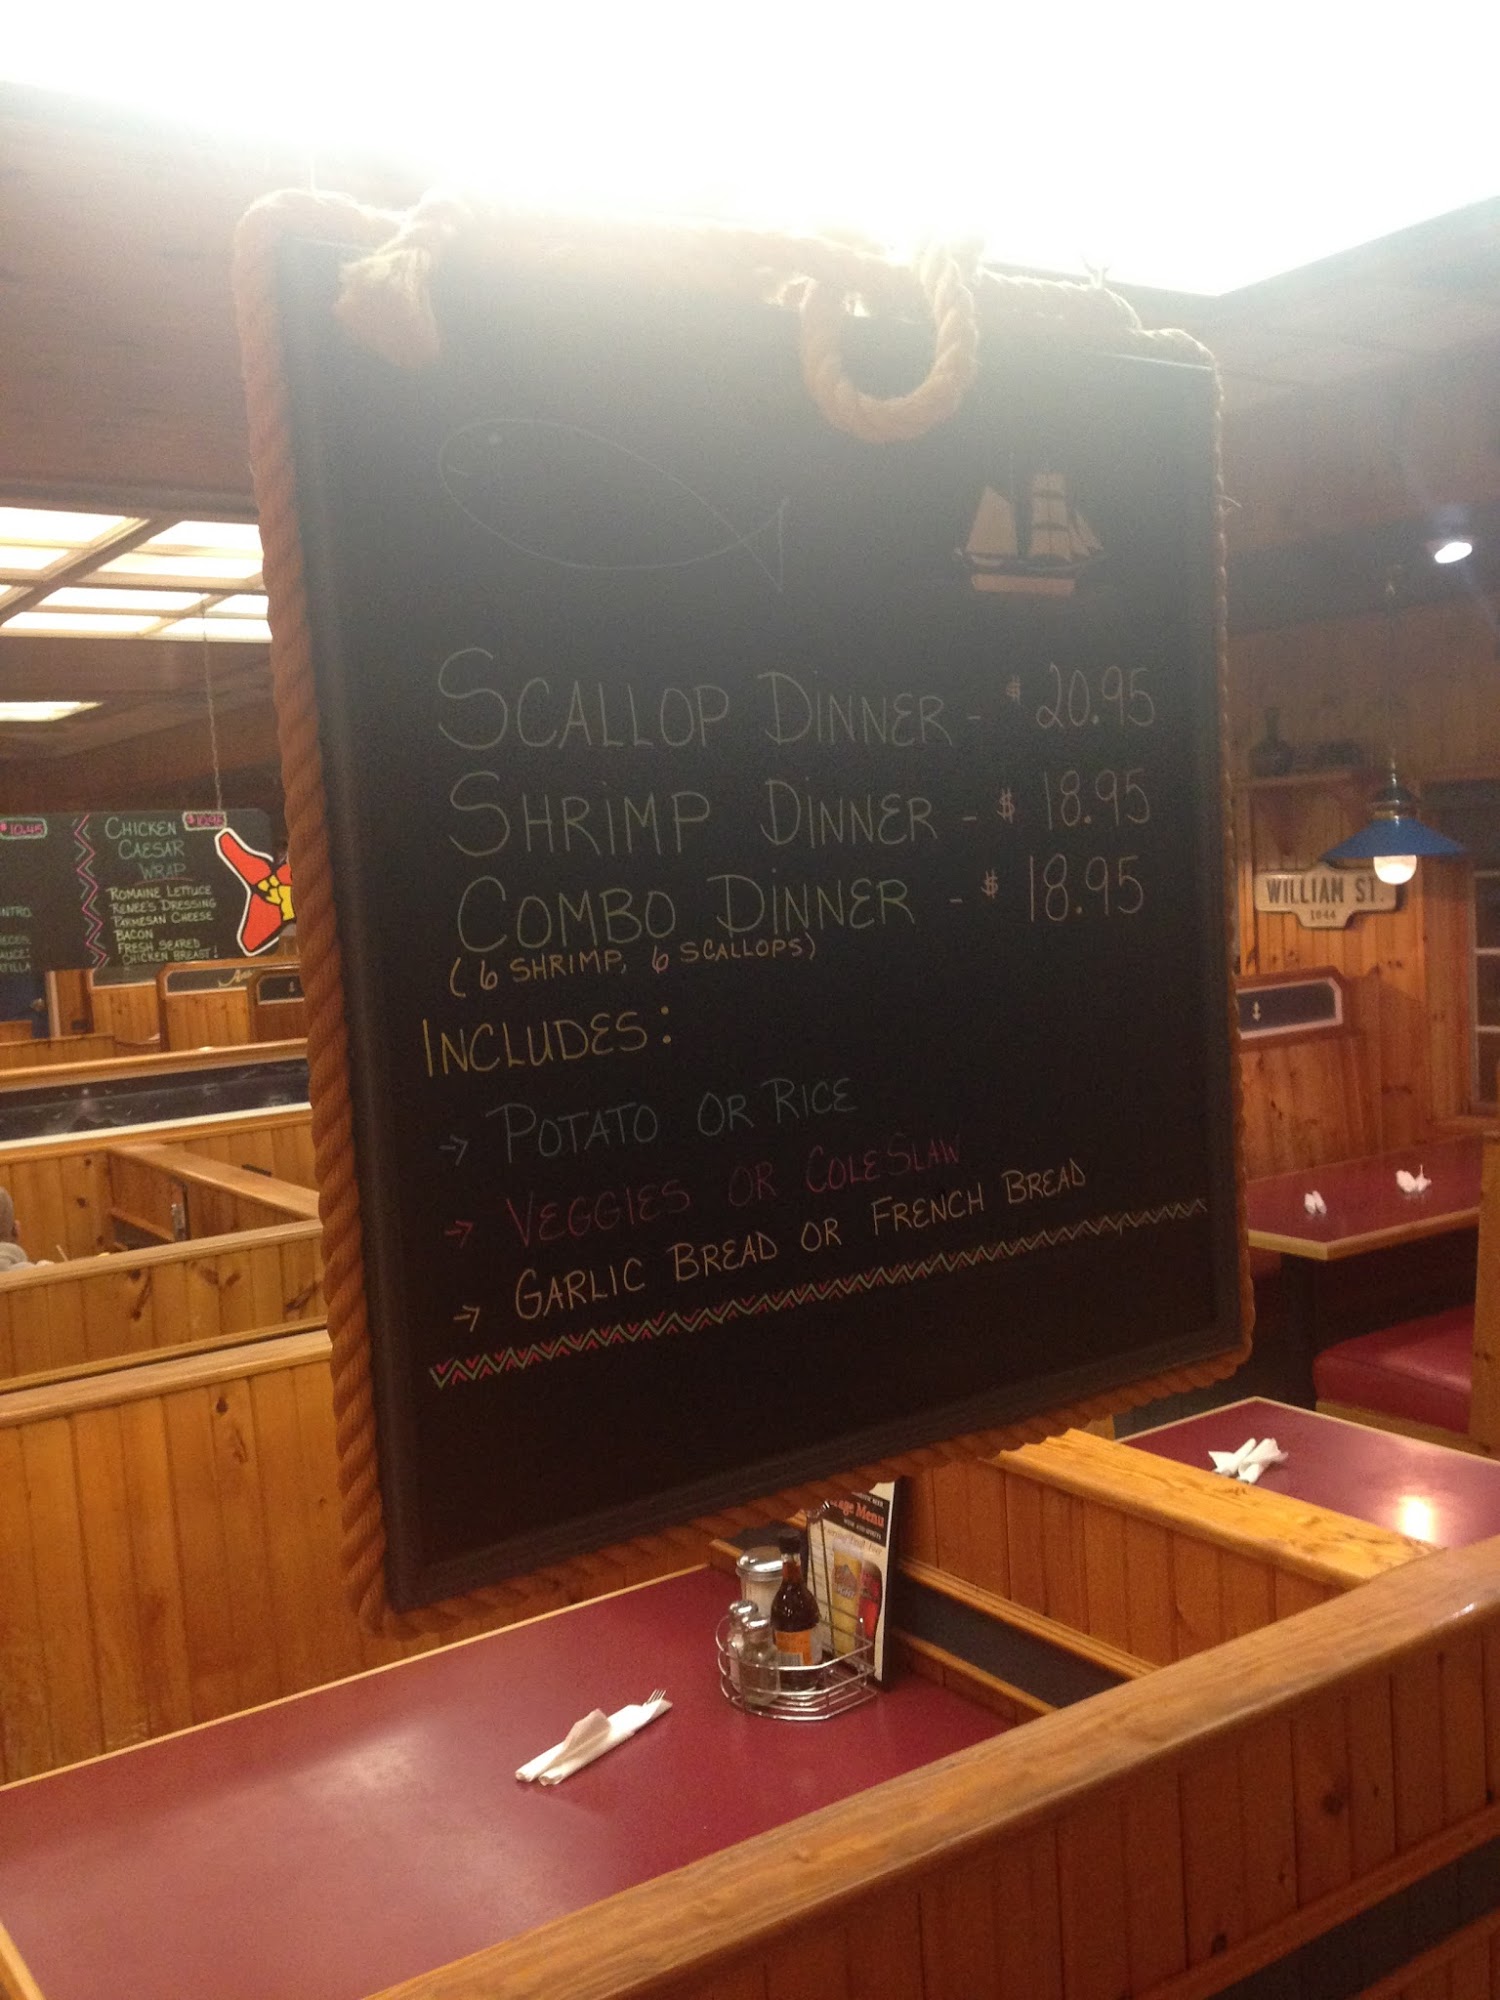 SCALLOP DINNER - $ 20.95
SHRIMP DINNER - $ 18.95
COMBO DINNER - $ 18.95
(6 SHRIMP, 6 SCALLOPS)
INCLUDES:
→ POTATO OR RICE
→ VEGGIES OR COLESLAW
→ GARLIC BREAD OR FRENCH BREAD
$10.45
CHICKEN
CAESAR
WRAP
ROMAINE LETTUCE
RENEE'S DRESSING
PARMESAN CHEESE
BACON
FRESH SEARED
CHICKEN BREAST!
WILLIAM ST.
1044
Menu